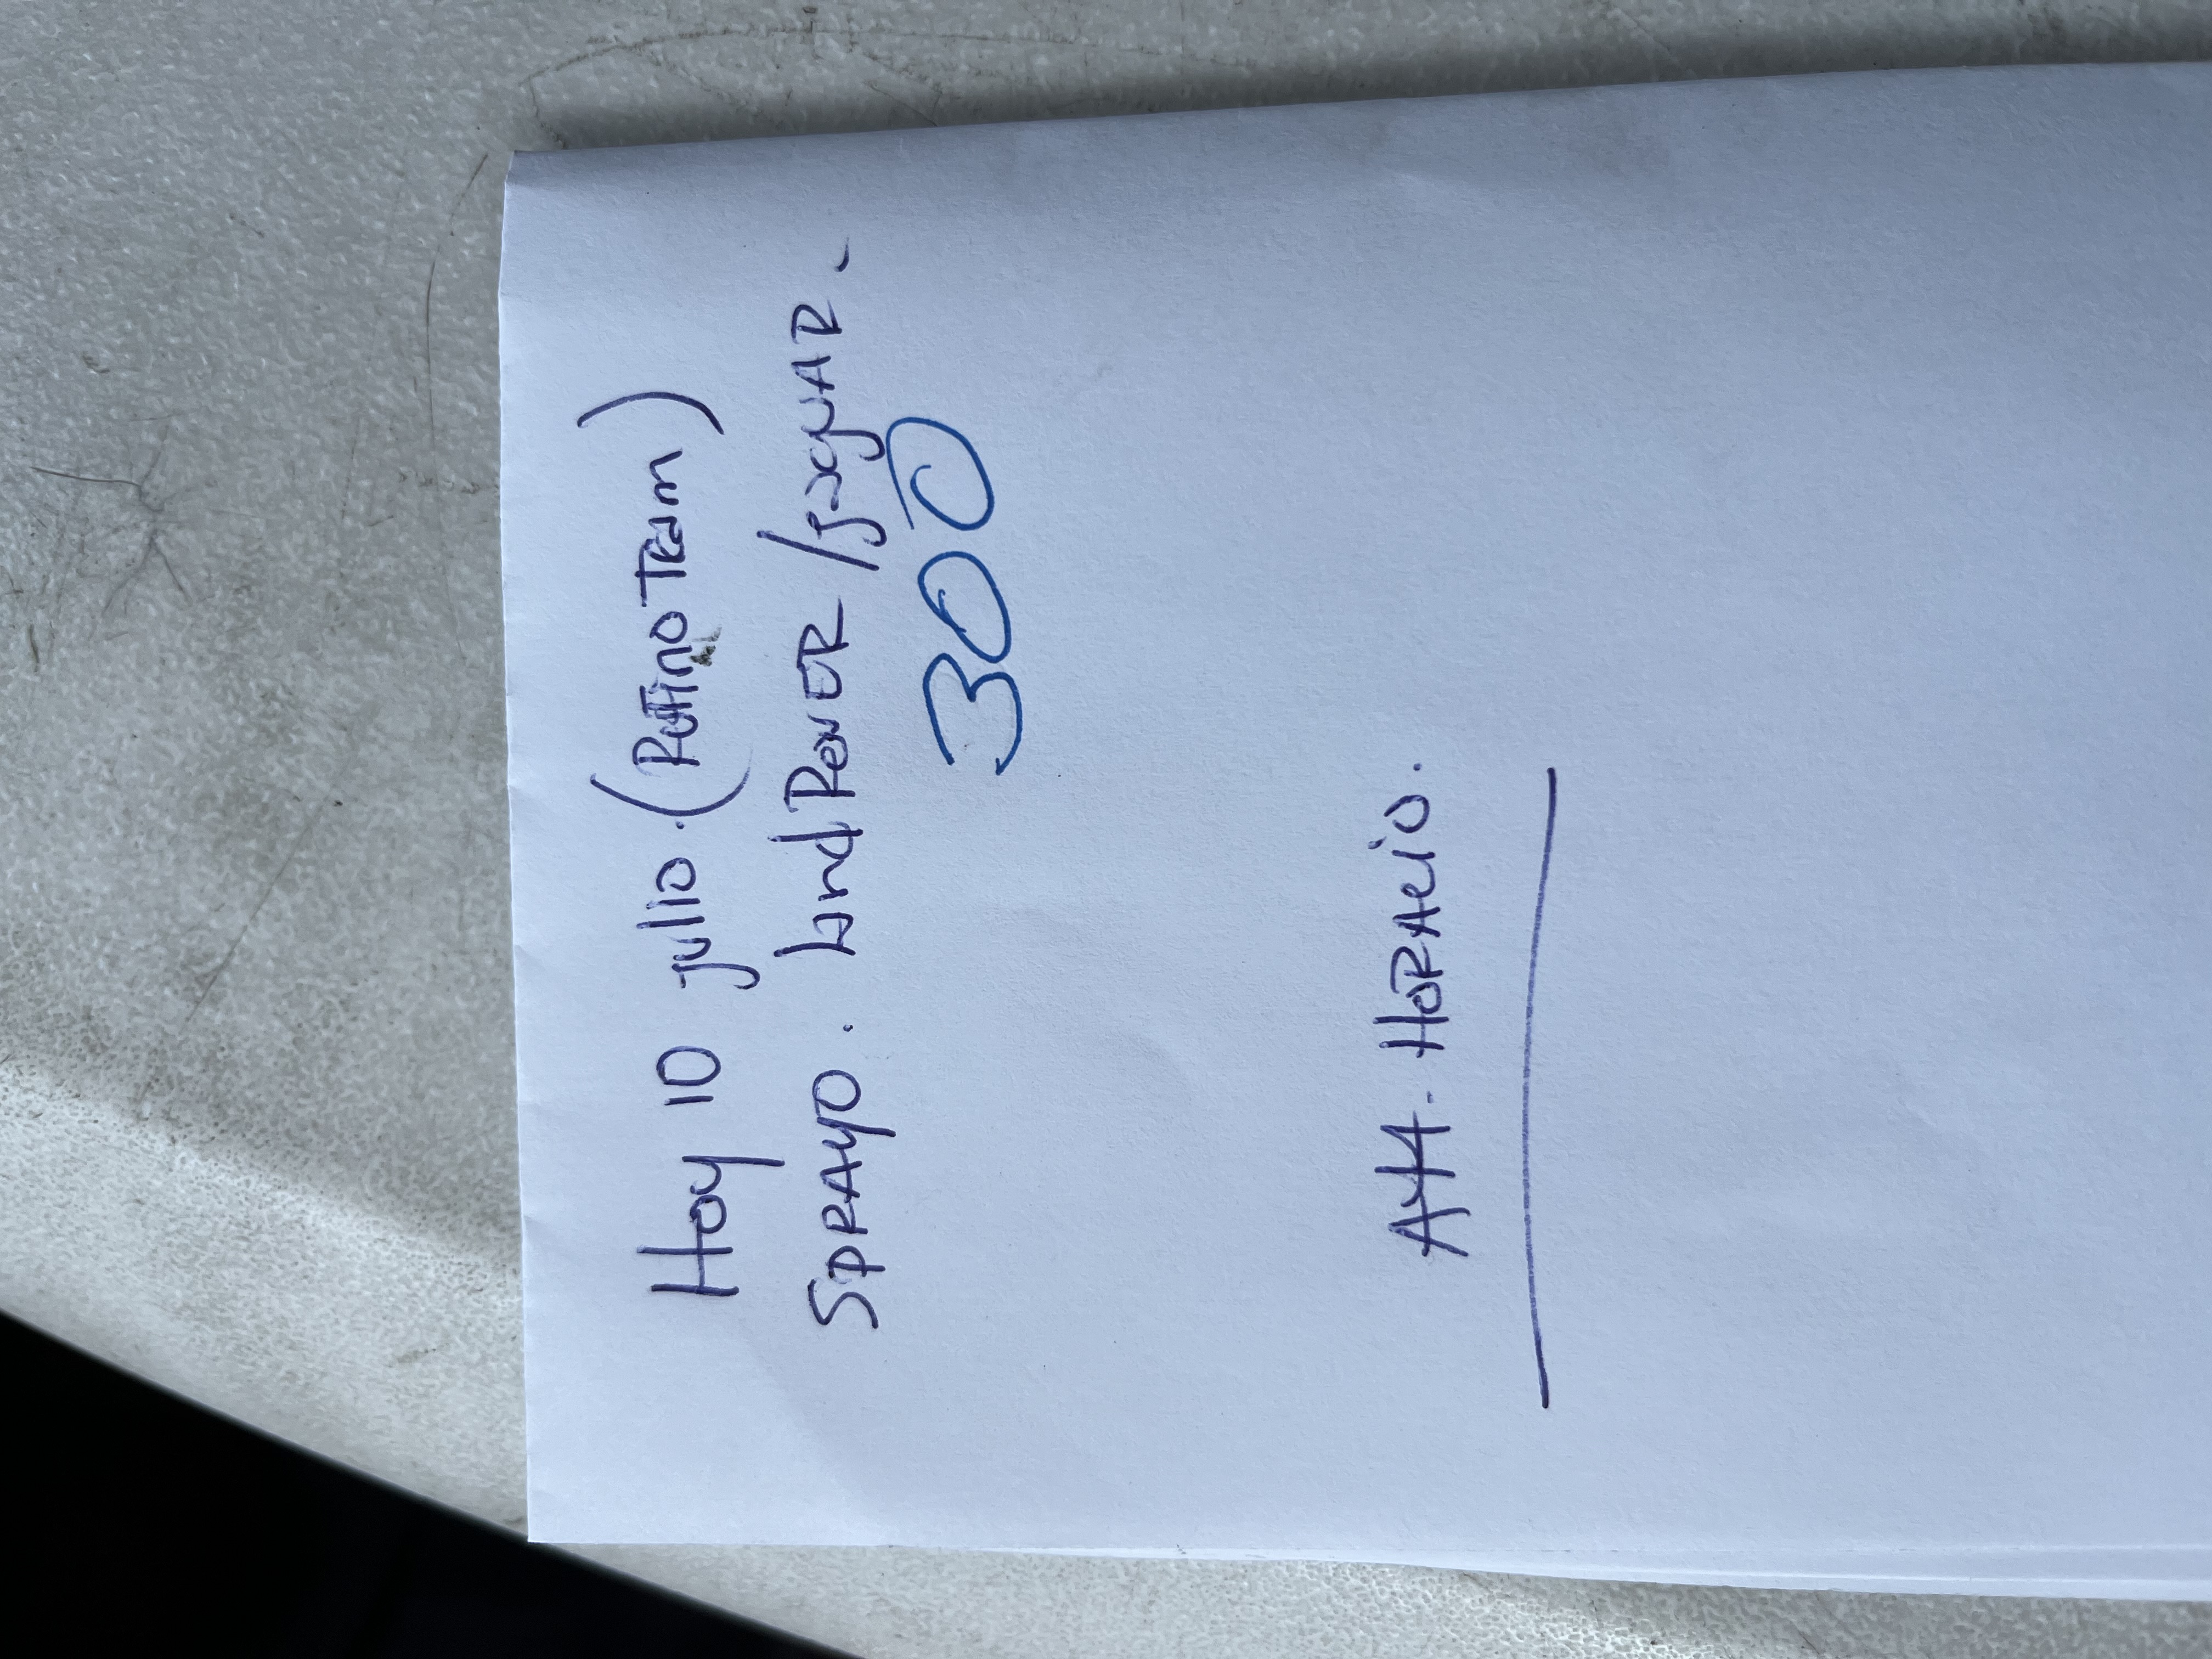 Hoy 10 julio. (Rufino Team)
SPRAYO. Land ROVER / Jaguar.
300
Att. HORACIO.